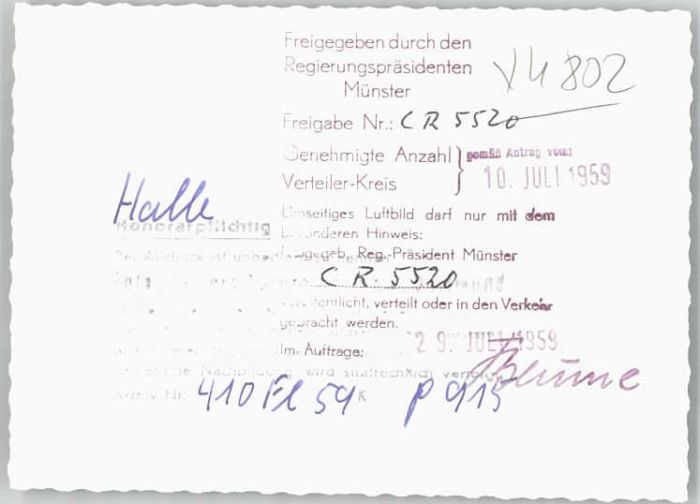 Freigegeben durch den
Regierungspräsidenten
Münster
V4 802
Freigabe Nr.: CR 5520
Genehmigte Anzahl } gemäß Antrag vom:
Verteiler-Kreis } 10. JULI 1959
Halle
Umseitiges Luftbild darf nur mit dem
Honorarpflichtig
besonderen Hinweis:
Abdruck ist
freigegeb. Reg.-Präsident Münster
CR. 5520
veröffentlicht, verteilt oder in den Verkehr
gebracht werden.
Im Auftrage: 29. JULI 1959
Blume
Nachbildung wird strafrechtlich
Archiv Nr. 410 Fl 59 K p 915